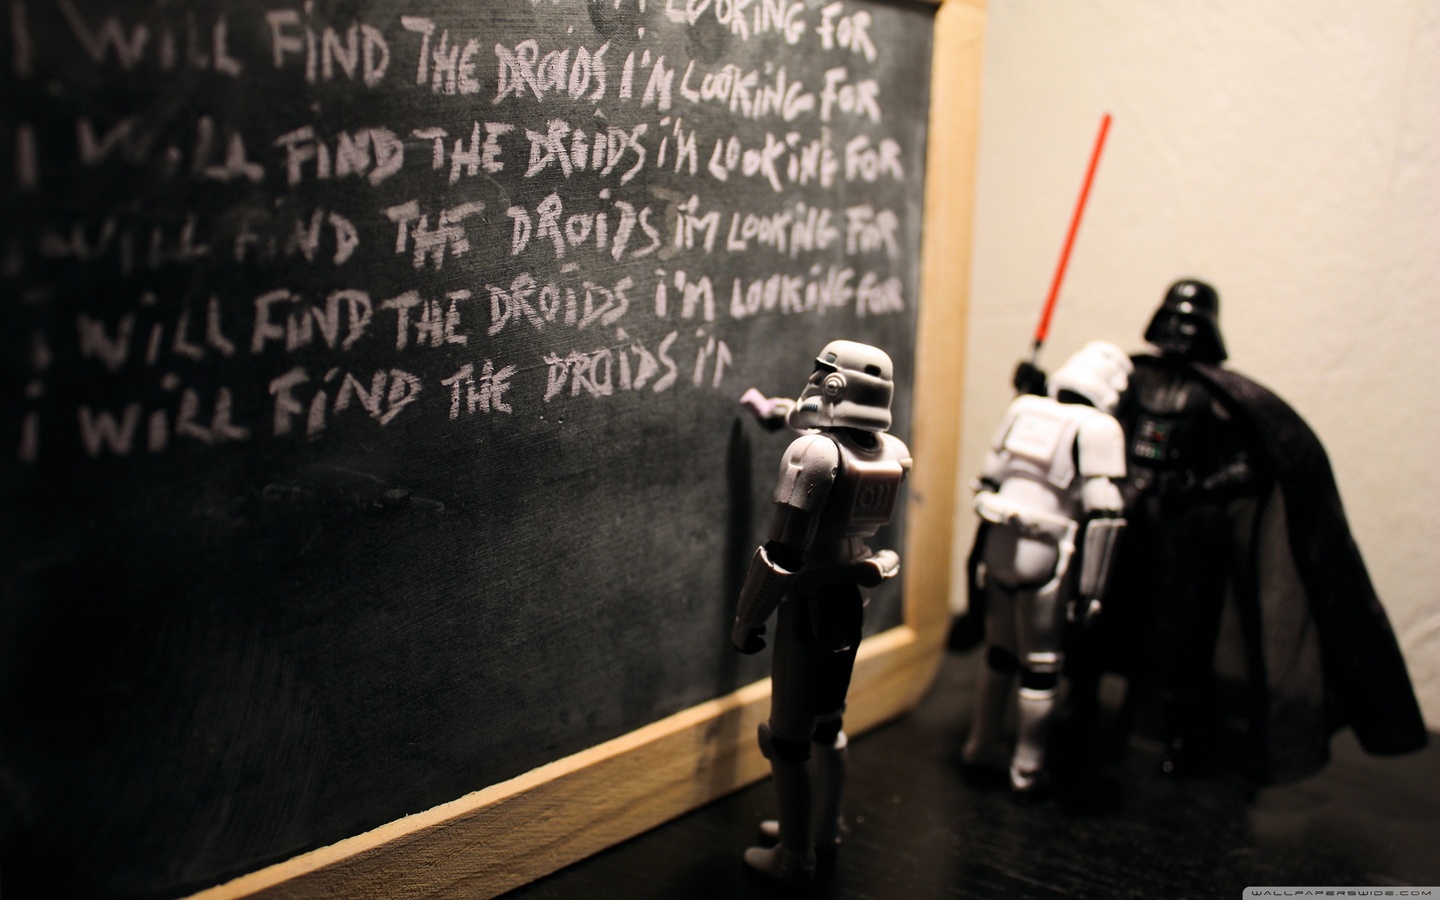 I'M LOOKING FOR
I WiLL FiND THE DROiDS i'M LOOKiNG FOR
I WiLL FiND THE DROiDS i'M LOOKiNG FOR
i WiLL FiND THE DROiDS i'M LOOKiNG FOR
i WiLL FiND THE DROiDS i'M LOOKiNG FOR
i WiLL FiND THE DROiDS i'M
WALLPAPERSWIDE.COM